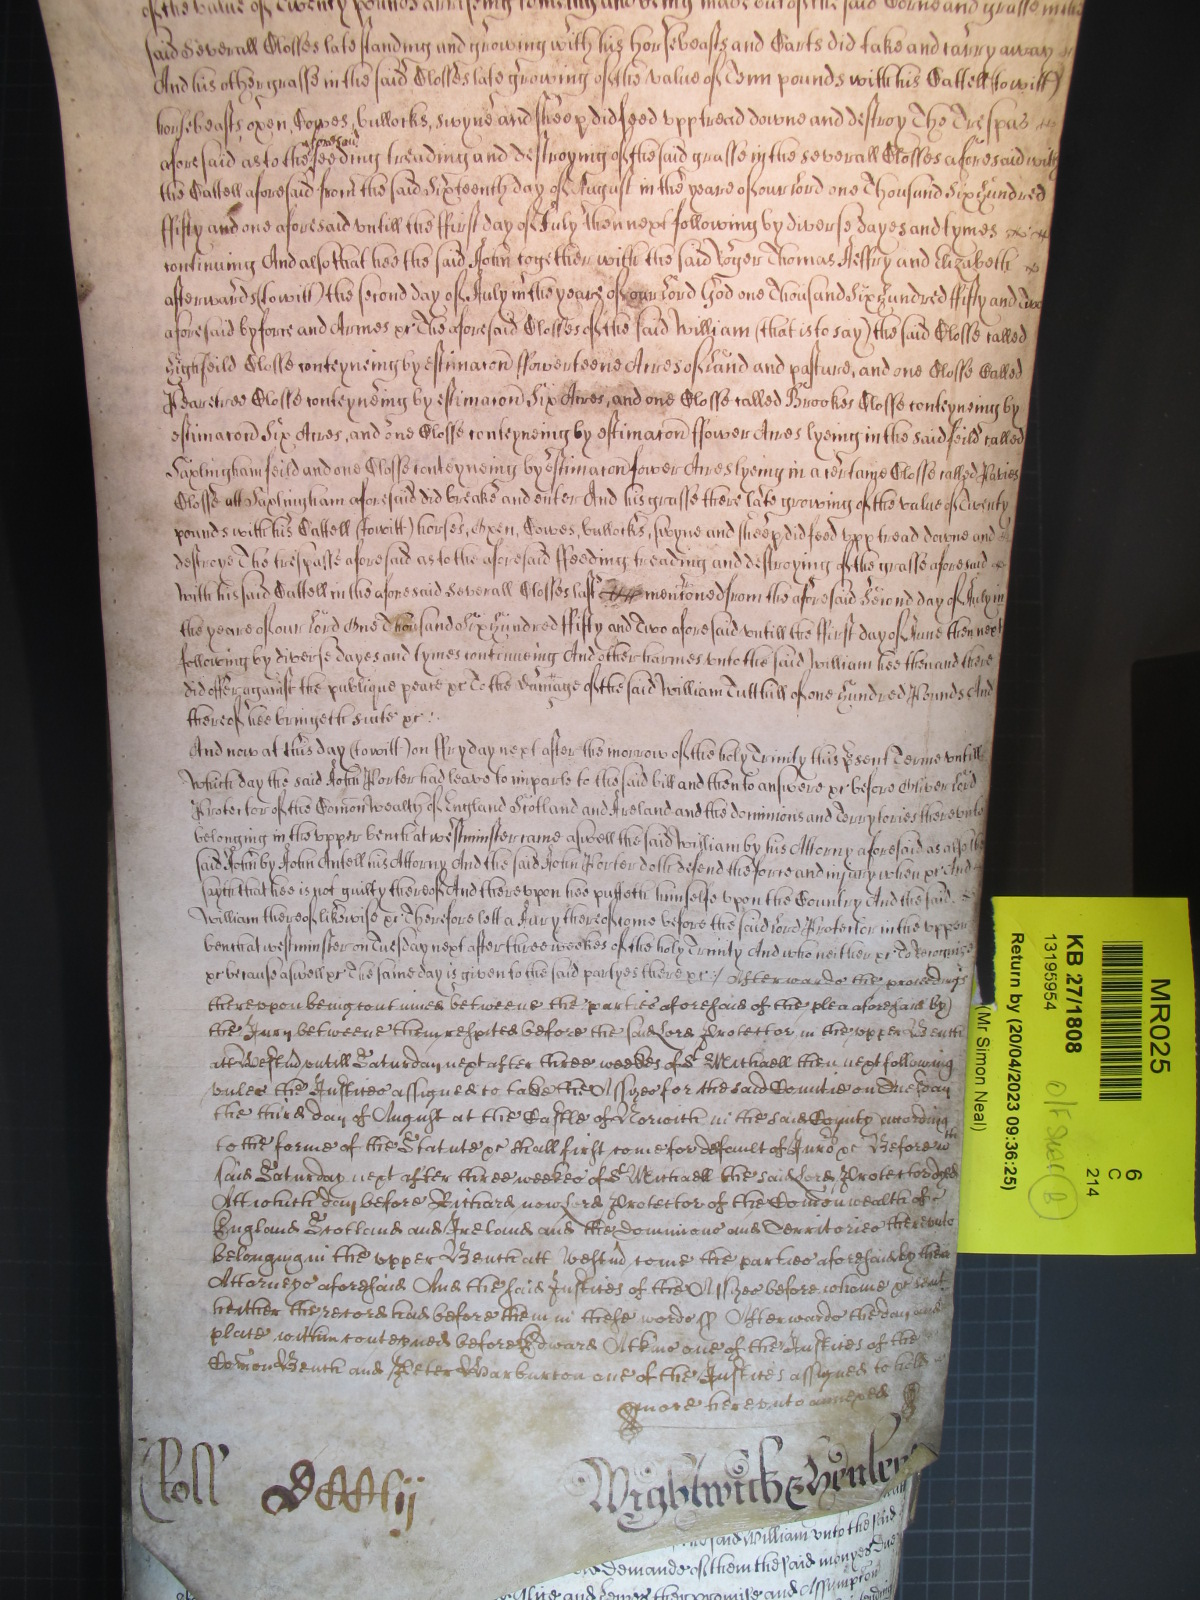 of the value of Twenty pounds arriseing comeing and being made out of the said Corne and grasse in the
said Severall Closses late standing and growing with his horsebeasts and Carts did take and carry away
And his other grasse in the said Closses late growing of the value of Tenn pounds with his Cattell (towitt)
horsebeasts oxen, Cowes, bullocks, swyne and sheep did feed upp tread downe and destroy The Trespas
aforesaid as to the aforesaid feeding treading and destroying of the said grasse in the severall Closses aforesaid with
the Cattell aforesaid from the said Sixteenth day of August in the yeare of our Lord one Thousand Six hundred
ffifty and one aforesaid untill the ffirst day of July then next following by diverse dayes and tymes
continuing And also that hee the said John together with the said Roger Thomas Jeffry and Elizabeth
afterwards (towitt) the second day of July in the yeare of our Lord God one Thousand Six hundred ffifty and Two
aforesaid by force and Armes &c The aforesaid Closses of the said William (that is to say) the said Closse called
Highfeild Closse conteyneing by estimacon ffowerteene Acres of Land and pasture, and one Closse Called
Pearetree Closse conteyneing by estimacon Six Acres, and one Closse called Brookes Closse conteyneing by
estimacon Six Acres, and one Closse conteyneing by estimacon ffower Acres lyeing in the said feild called
Saxlingham feild and one Closse conteyneing by estimacon fower Acres lyeing in a certaine Closse called Paties
Closse att Saxlingham aforesaid did breake and enter And his grasse there late growing of the value of Twenty
pounds with his Cattell (towitt) horses, Oxen, Cowes, bullocks, swyne and sheep did feed upp tread downe and
destroye The trespasse aforesaid as to the aforesaid ffeeding treading and destroying of the grasse aforesaid
with his said Cattell in the aforesaid Severall Closses last mentoned from the aforesaid Second day of July in
the yeare of our Lord One Thousand Six hundred ffifty and Two aforesaid untill the ffirst day of June then next
following by diverse dayes and tymes continueing And other harmes unto the said William hee then and there
did offer against the publique peace &c To the damage of the said William Tutthill of one hundred Pounds And
thereof hee bringeth suite &c :
And now at this day (towitt) on ffryday next after the morrow of the holy Trinity this present Terme untill
which day the said John Porter had leave to imparle to the said bill and then to answere &c before Oliver Lord
Protector of the Comonwealth of England Scotland and Ireland and the dominions and Terrytories thereunto
belonging in the upper bench at westminster came aswell the said William by his Attorny aforesaid as also the
said John by John Antell his Attorny And the said John Porter doth defend the force and injury when &c And
sayth that hee is not guilty thereof And thereupon hee putteth himselfe upon the Country And the said
William thereof likewise &c Therefore lett a Jury thereof come before the said Lord Protector in the upper
bench at westminster on Tuesday next after three weekes of the holy Trinity And who neither &c To recognize
&c because aswell &c The same day is given to the said partyes there &c :/ Afterwards the proceedings
thereupon being continued betweene the parties aforesaid of the plea aforesaid by
the Jury betweene them respited before the said Lord Protector in the upper Bench
att Westm untill Saturday next after three weekes of St Michaell then next following
unles the Justices assigned to take the Assizes for the said Countie on Tuesday
the third day of August at the Castle of Norwich in the said County according
to the forme of the Statute &c shall first come for default of Juro &c Before wch
said Saturday next after three weekes of St Michaell the said Lord Protector dyed
Att which day before Richard now Lord Protector of the Comonwealth of
England Scotland and Ireland and the Dominions and Territories thereunto
belonging in the upper Bench att Westm come the parties aforesaid by their
Attorneys aforesaid And the said Justices of the Assizes before whome &c sent
heither the record had before them in these words ss Afterwards the day and
place within conteyned before Edward Atkins one of the Justices of the
Comon Bench and Peter Warburton one of the Justices assigned to hold
more hereunto annexed
Roll DCCCiij
Wightwick & Henley
said William unto the said
demande of them the said monyes
their promise and Assumption
MR025
6
C
214
KB 27/1808
13195954
Return by (20/04/2023 09:36:25)
(Mr Simon Neal)